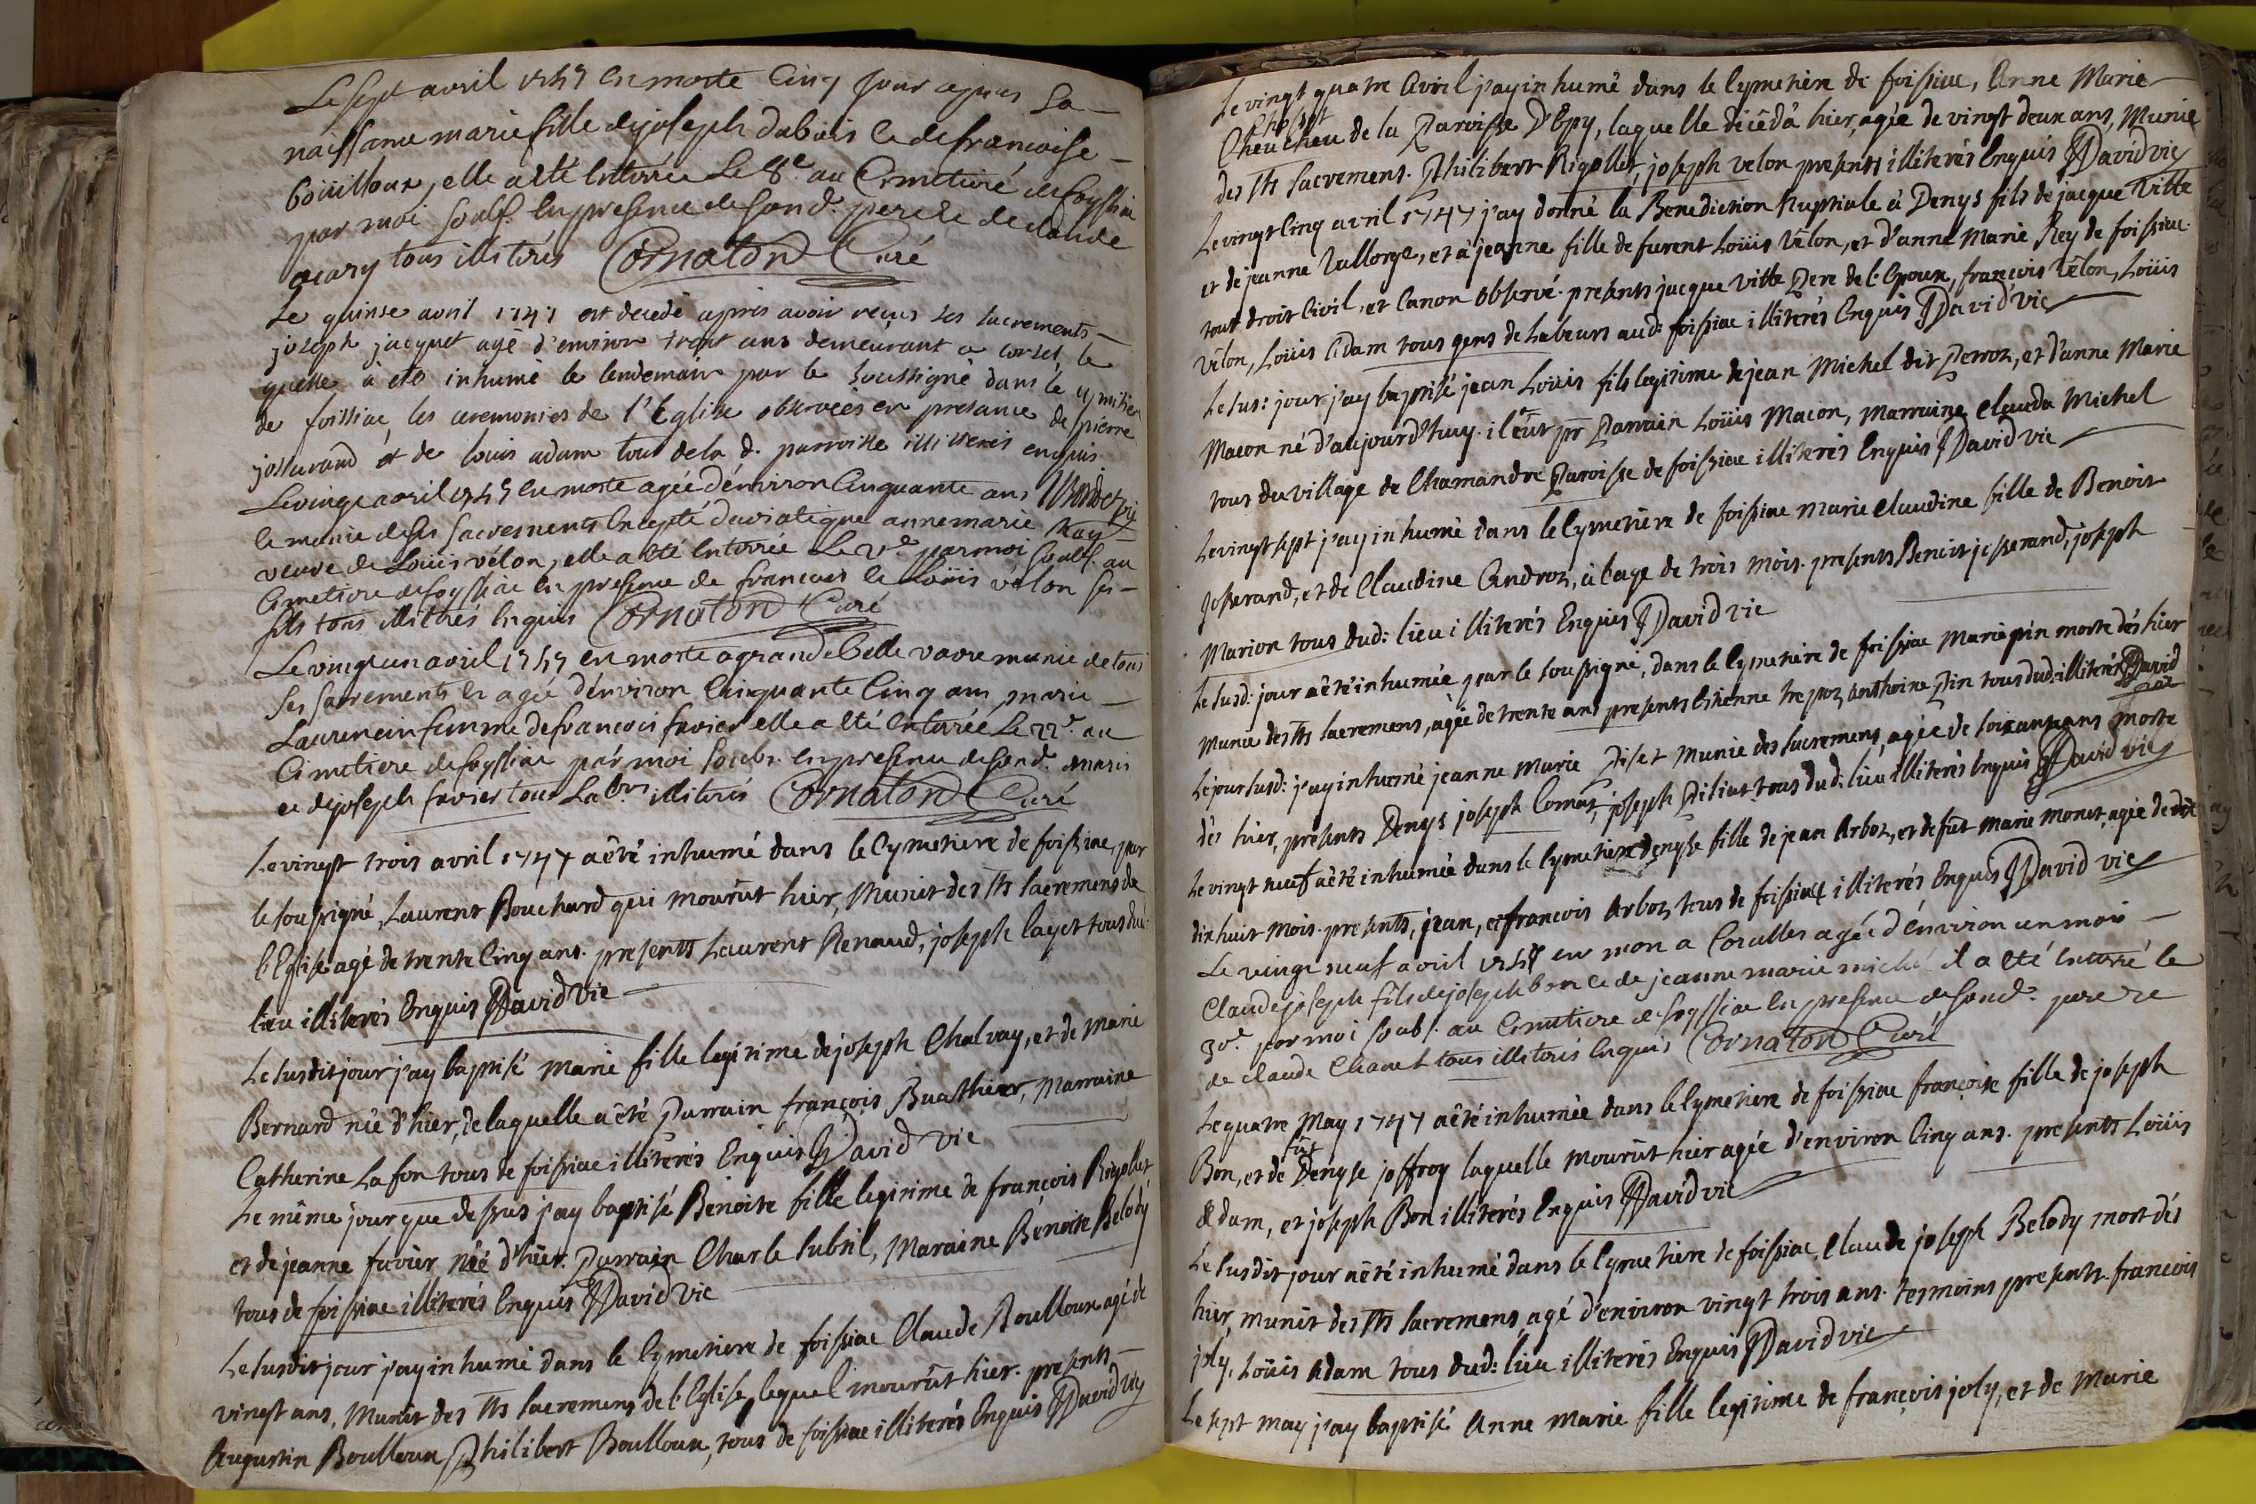 Le sept avril 1747 est morte cinq jour apres sa
naissance marie fille de joseph dubois et de francoise
Boüilloux, elle a eté enterrée le 8e au Cimetiere de foyssia
par moi soubs. en presence de son d. pere et de claude
acary tous illiterés Cornaton Curé
Le quinse avril 1747 est decedé apres avoir reçus les sacrements
joseph jacquet agé d'environ trent ans demeurant a le
quelle à eté inhumé le lendemain par le soussigné dans le cymitier
de foissiac, les ceremonies de l'Eglise observées en presance de pierre
josserand et de louis adam tous de la d. parroisse illiterés enquis
Le vingt avril 1747 est morte agée d'environ cinquante ans
et munie de ses sacrements excepté du viatique anne marie Ray
veuve de Loüis vélon, elle a eté enterrée le par moi soubs. au
Cimetiere de foyssiac en presence de francois et Loüis vélon ses
fils tous illiterés enquis Cornaton Curé
Le vingt un avril 1747 est morte a grande Celle vavre munie de tous
ses sacrements et agée d'environ cinquante cinq ans marie
Laurencin femme de francois favier elle a eté enterrée le 22e au
Cimetiere de foyssiac par moi soubs. en presence de son d. maris
et de joseph favier tous Labrs illiterés Cornaton Curé
Le vingt trois avril 1747 a êté inhumé dans le Cymetiere de foissiac, par
le soussigné, Laurent Bouchard qui mourût hier, Munit des Sts sacremens de
l'Eglise agé de trente cinq ans. presents Laurent Renaud, joseph layet tous dud.
lieu illiterés Enquis David vic
Le susdit jour j'ay baptisé Marie fille legitime de joseph Chalvay, et de Marie
Bernard née d'hier, de laquelle a êté Parrain françois Buathier, Marraine
Catherine Lafon tous de foissiac illiterés Enquis David vic
Le même jour que dessus j'ay baptisé Benoite fille legitime de françois Rigollet
et de jeanne favier née d'hier. Parrain Charle subtil, Maraine Benoite Belody
tous de foissiac illiterés Enquis David vic
Le susdit jour j'ay inhumé dans le Cymetiere de foissiac Claude Boulloux agé de
vingt ans, Munit des Sts sacremens de l'Eglise, lequel mourût hier. presents
Augustin Boulloux, Philibert Boulloux, tous de foissiac illiterés Enquis David vic
Le vingt quatre Avril j'ay inhumé dans le Cymetiere de foissiac, Anne Marie
Cheucheu de la Parroisse D'Epy, laquelle décéda hier, agée de vingt deux ans, Munie
des Sts sacremens. Philibert Rigollet, joseph velon presents illiterés Enquis David vic
Le vingt Cinq avril 1747 j'ay donné la Benediction Nuptiale à Denys fils de jacque Vitte
et de jeanne Vallorge, et à jeanne fille de furent Loüis Vélon, et d'anne Marie Rey de foissiac.
tout droit Civil, et Canon observé. presents jacque Vitte Pere de l'Epoux, françois Vélon, Loüis
Vélon, Loüis Adam tous gens de Labeurs aud: foissiac illiterés Enquis David vic
Le sus: jour j'ay baptisé jean Loüis fils legitime de jean Michel dit Perroz, et d'anne Marie
Macon né d'aujourd'huy. il eût pr Parrain Loüis Macon, Marraine Clauda Michel
tous du village de Chamandré Paroisse de foissiac illiterés Enquis David vic
Le vingt sept j'ay inhumé dans le Cymetiere de foissiac Marie Claudine fille de Benoit
josserand, et de Claudine Androz, à l'age de trois mois. presents Benoit josserand, joseph
Marion tous dud: lieu illiterés Enquis David vic
Le susd: jour a êté inhumée par le soussigné, dans le Cymetiere de foissiac Marie pin morte dés hier
Munie des Sts sacremens, agée de trente ans presents Etienne Anthoine Pin tous dud: illiterés David
vic
Le jour susd: j'ay inhumé jeanne Marie Piset Munie des sacremens, agée de soixante ans morte
dés hier, presents Denys joseph joseph Pilliat tous dud: lieu illiterés Enquis David vic
Le vingt neuf a êté inhumée dans le Cymetiere denyse fille de jean Arboz, et de fût Marie Monet, agée de
dix huit mois. presents, jean, et françois Arboz tous de foissiac illiterés Enquis David vic
Le vingt neuf avril 1747 est mort a agée d'environ un moi
Claude joseph fils de joseph bon et de jeanne marie michel il a eté enterré le
30e par moi soubs. au Cimetiere de foyssiac en presence de son d. pere et
de claude Chanel tous illiterés enquis Cornaton Curé
Le quatre May 1747 a êté inhumée dans le Cymetiere de foissiac françoise fille de joseph
fût
Bon, et de Denyse joffroy laquelle mourût hier agée d'environ Cinq ans. presents Loüis
Adam, et joseph Bon illiterés Enquis David vic
Le susdit jour a êté inhumé dans le Cymetiere de foissiac, Claude joseph Belody mort dés
hier, munit des Sts sacremens, agé d'environ vingt trois ans. temoins presents. françois
joly, Loüis Adam tous dud: lieu illiterés Enquis David vic
Le sept may j'ay baptisé Anne Marie fille legitime de françois joly, et de Marie